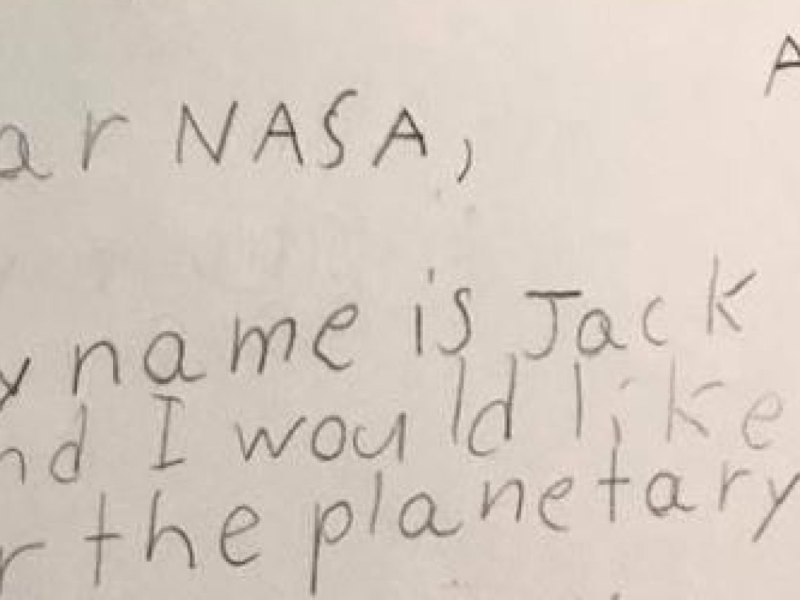 ar NASA,
y name is Jack
nd I would like
r the planetary